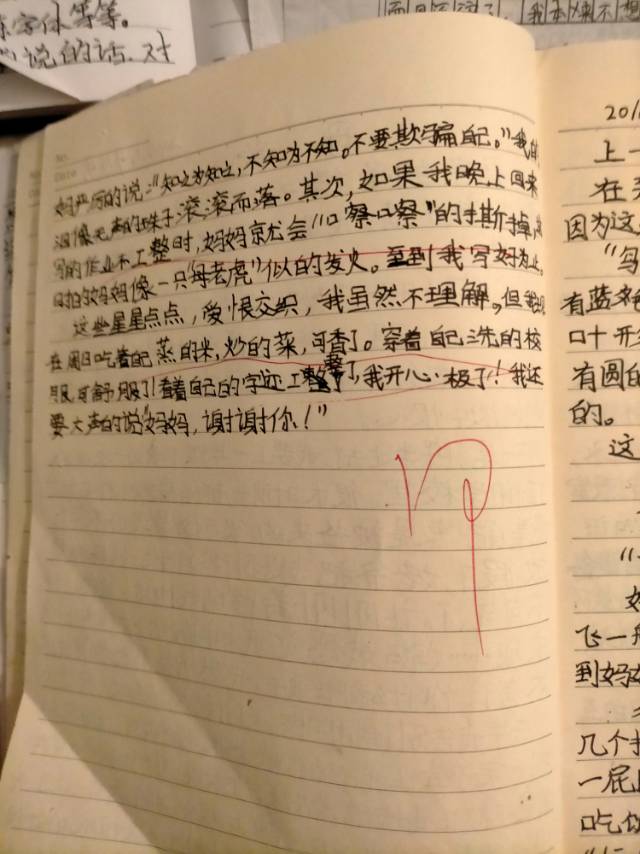 等等。
说的话.对
我本来不想
妈严厉的说:"知之为知之,不知为不知。不要欺骗自己。"我的
泪像无声的珠子滚滚而落。其次,如果我晚上回来
写的作业不工整时,妈妈就会"口察口察"的撕掉,
妈妈像一只"母老虎"似的发火。至到我写好为止。
这些星星点点,爱恨交织,我虽然不理解。但我
在周日吃着自己蒸的米,炒的菜,可香了。穿着自己洗的校
服,可舒服了!看着自己的字迹工整了,我开心极了!我还
要大声的说"妈妈,谢谢你!"
上一
在
因为这
有蓝
口十开
有圆的
的。
这
飞一般
到妈妈
几个
一屁
吃饭